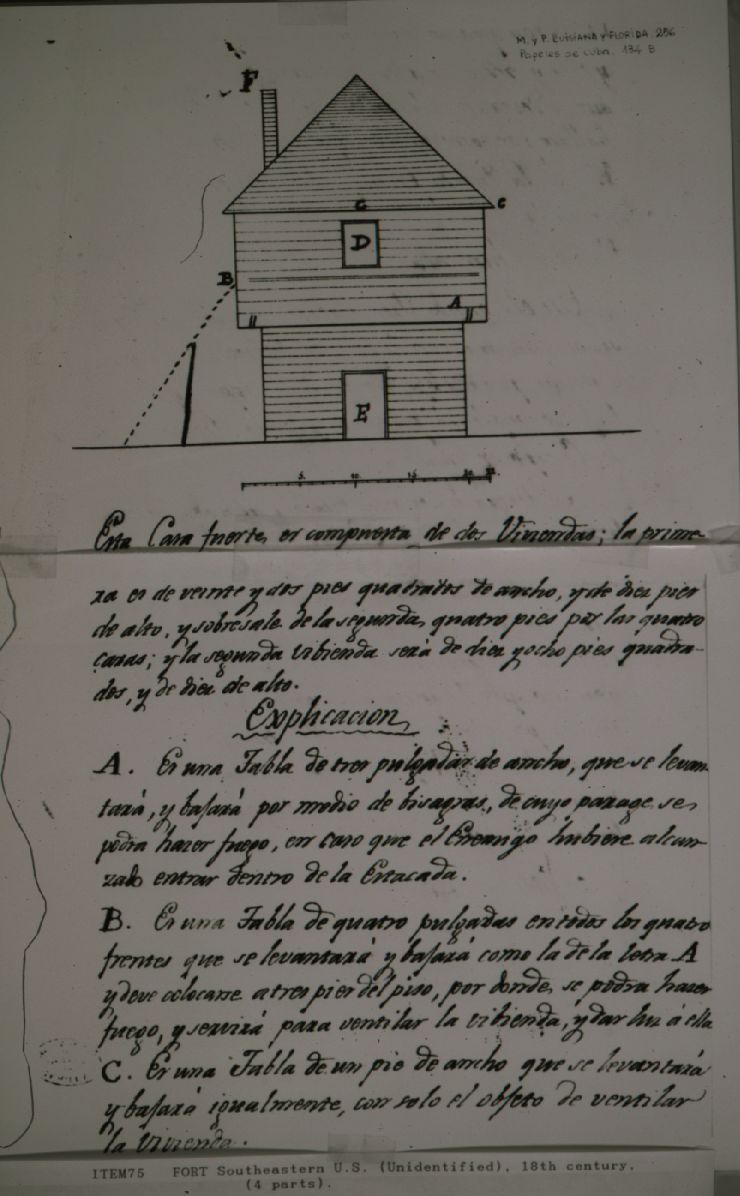 M. y P. LUISIANA y FLORIDA. 286
Papeles de Cuba. 134 B
F
G
C
D
B
A
E
5. 10. 15. 20. 22.
Esta Casa fuerte, es compuesta de dos Viviendas; la prime-
ra es de veinte y dos pies quadrados de ancho, y de diez pies
de alto, y sobresale de la segunda, quatro pies por las quatro
caras; y la segunda vibienda será de diez y ocho pies quadra-
dos, y de diez de alto.
Explicacion
A. Es una Tabla de tres pulgadas de ancho, que se levan-
tará, y bajará por medio de bisagras, de cuyo parage se
podra hazer fuego, en caso que el Enemigo hubiere alcan-
zado entrar dentro de la Estacada.
B. Es una Tabla de quatro pulgadas en todos los quatro
frentes que se levantará y bajará como la de la letra A
y deve colocarse a tres pies del piso, por donde, se podra hazer
fuego, y servirá para ventilar la vibienda, y dar luz á ella
C. Es una Tabla de un pie de ancho que se levantará
y bajará igualmente, con solo el objeto de ventilar
la Vivienda.
ITEM75 FORT Southeastern U.S. (Unidentified), 18th century.
(4 parts).